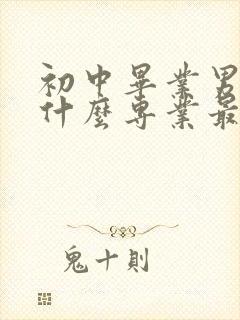 初中畢業男
什麼專業最
鬼十則